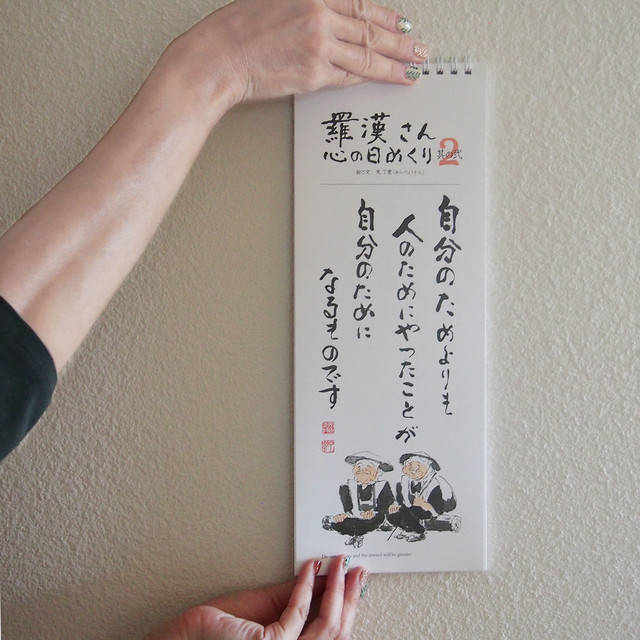 羅漢さん
心の日めくり
2
其の弐
自分のためよりも
人のためにやったことが
自分のために
なるものです
and the reward will be greater.